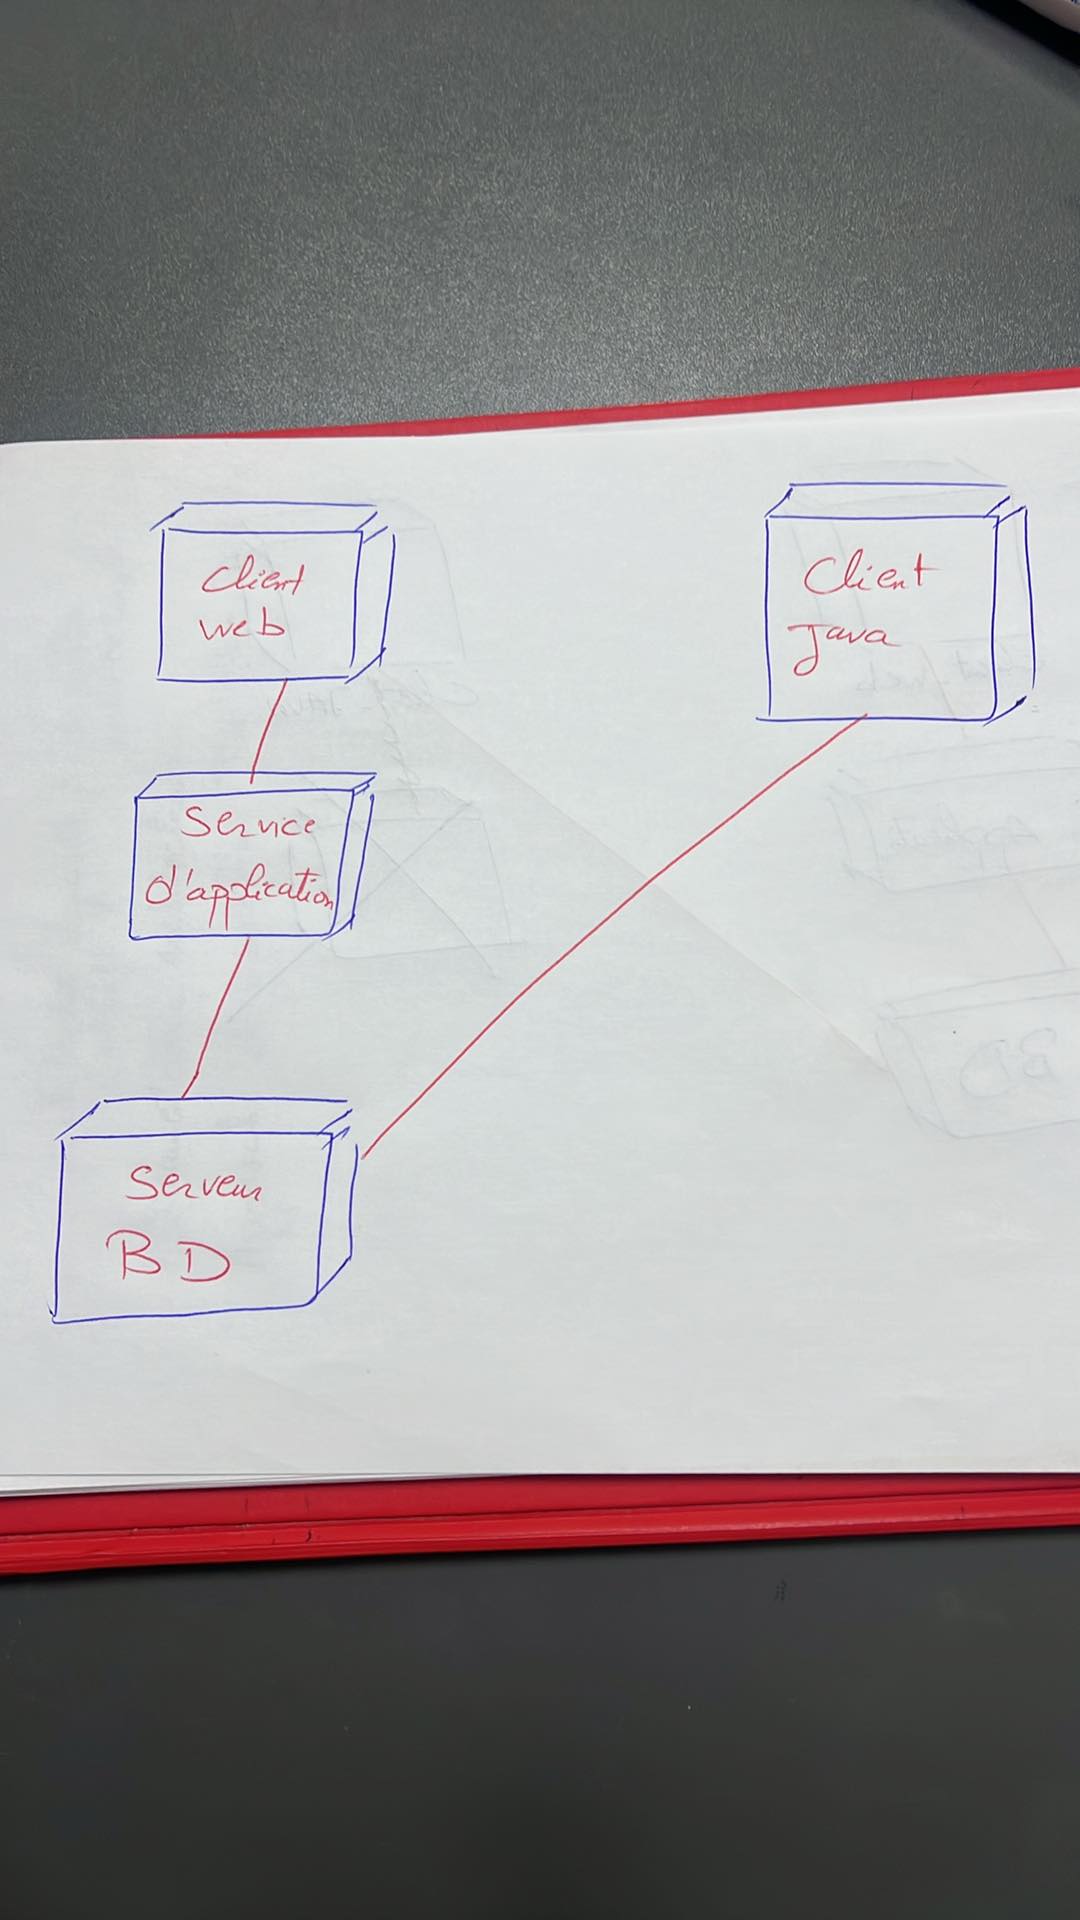 Client
web
Client
Java
Service
d'application
Serveur
BD